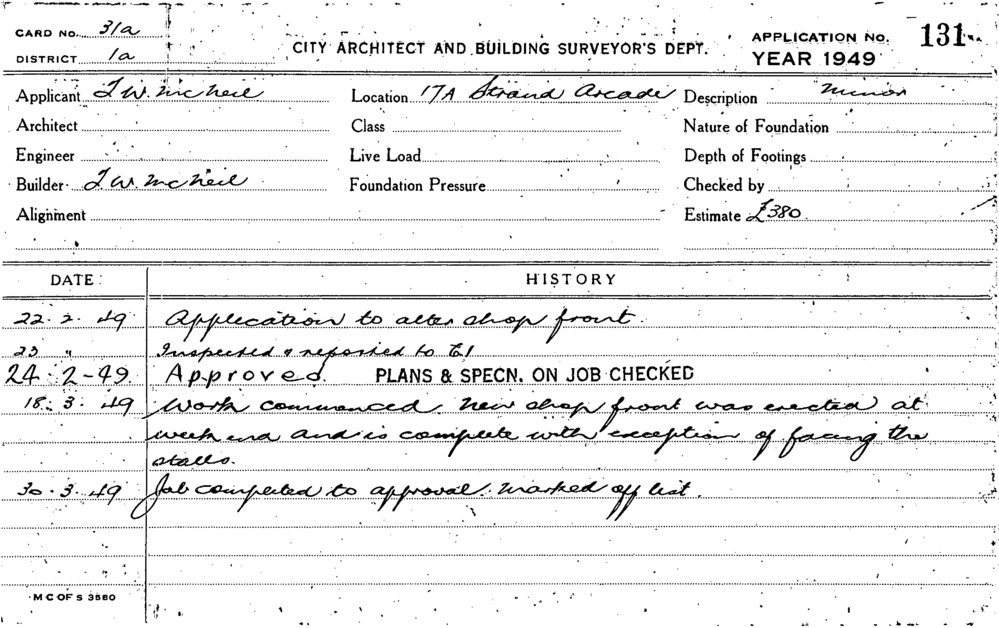 CARD No. 31a
DISTRICT 1a
CITY ARCHITECT AND BUILDING SURVEYOR'S DEPT.
APPLICATION No. 131
YEAR 1949
Applicant T. W. McNeil Location 17A Strand Arcade Description Minor
Architect Class Nature of Foundation
Engineer Live Load Depth of Footings
Builder T. W. McNeil Foundation Pressure Checked by
Alignment Estimate £380
DATE HISTORY
22. 2. 49 Application to alter shop front.
23 " Inspected & reported to
24. 2-49. Approved. PLANS & SPECN. ON JOB CHECKED
18. 3. 49 Work commenced. New shop front was erected at
week end and is complete with exception of facing the
stalls.
30. 3. 49 Job completed to approval. Marked off list.
M C OF S 3580